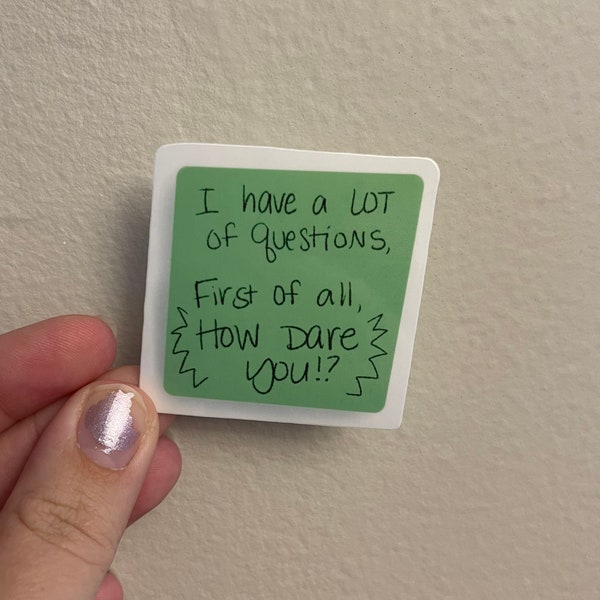 I have a LOT
of questions,
First of all,
HOW Dare
you!?